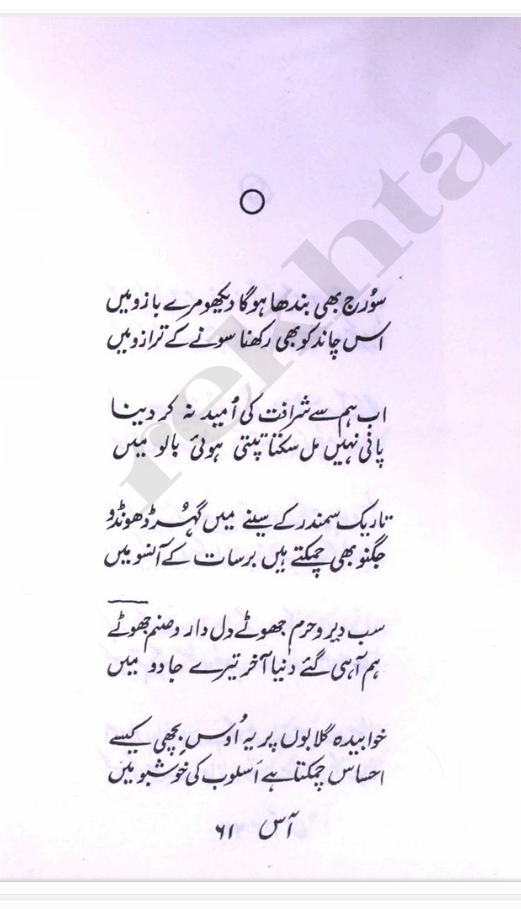 سُورج بھی بندھا ہوگا دیکھو مرے بازو میں
اس چاند کو بھی رکھنا سونے کے ترازو میں
اب ہم سے شرافت کی اُمید نہ کر دینا
پانی نہیں مل سکتا تپتی ہوئی بالو میں
تاریک سمندر کے سینے میں گہُر ڈھونڈو
جگنو بھی چمکتے ہیں برسات کے آنسو میں
سب دیر و حرم جھوٹے دل دار و صنم جھوٹے
ہم آ ہی گئے دنیا آخر تیرے جادو میں
خوابیدہ گلابوں پر یہ اُوس بِچھی کیسے
احساس چمکتا ہے اسلوب کی خوشبو میں
آس ۶۱
rekhta